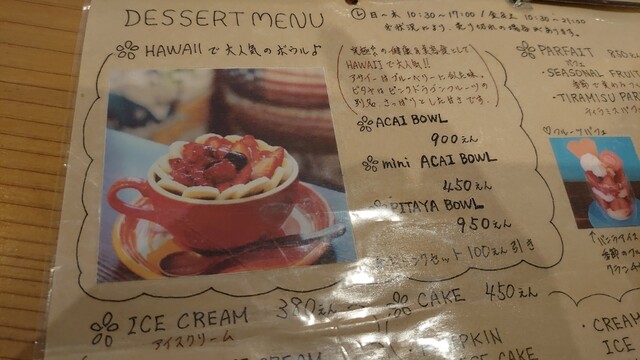 DESSERT MENU
日-木 10:30~17:00 / 金土 10:30~21:00
HAWAIIで大人気のボウル♪
HAWAIIで大人気!!
アサイーはブルーベリーに似た味。
ピタヤはピンクドラゴンフルーツの
別名。さっぱりとした甘さです。
ACAI BOWL
900えん
mini ACAI BOWL
450えん
PITAYA BOWL
950えん
ドリンクセット 100えん引き
PARFAIT
パフェ
・SEASONAL FRUIT
・TIRAMISU PAR
ティラミスパフェ
フルーツパフェ
ICE CREAM 380えん
アイスクリーム
CAKE 450えん
・CREAM
ICE